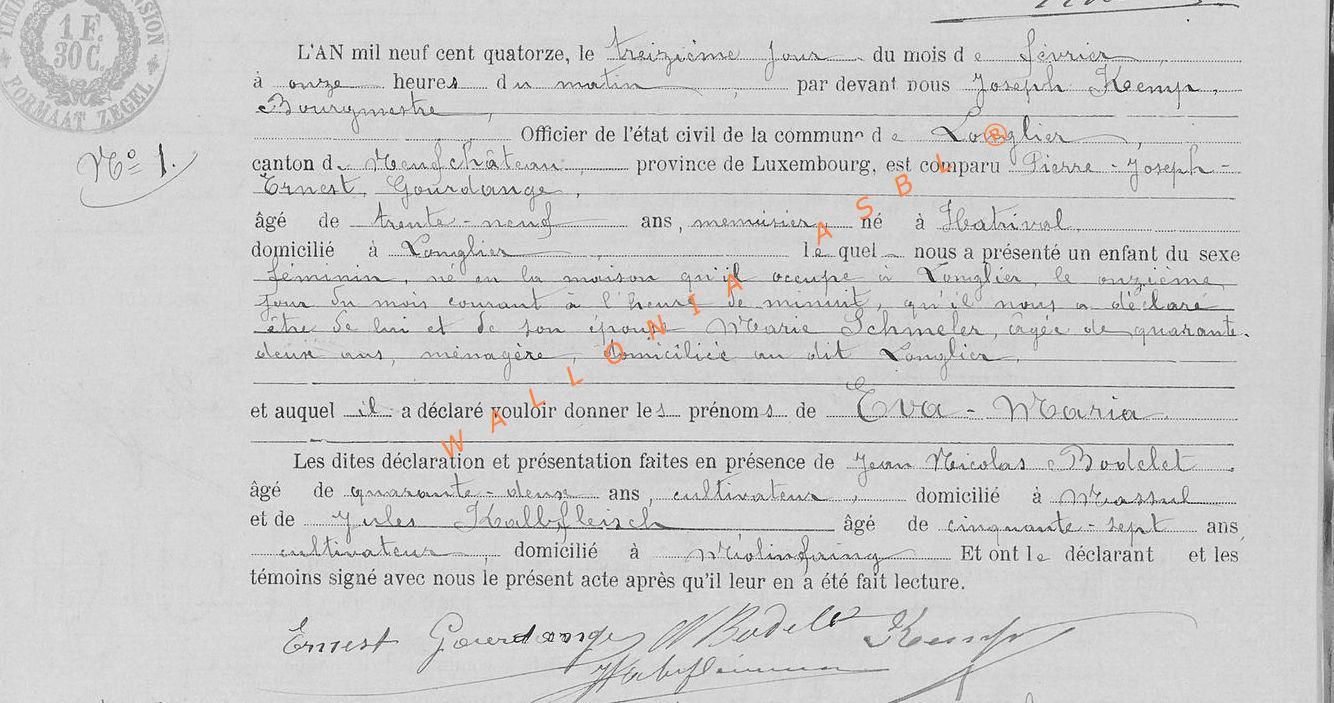 1 F.
30 C.
FORMAAT ZEGEL
L'AN mil neuf cent quatorze, le treizième jour du mois de février
à onze heures du matin, par devant nous Joseph Kemp,
Bourgmestre,
Officier de l'état civil de la commune de Longlier,
No 1.
canton de Neufchâteau, province de Luxembourg, est comparu Pierre-Joseph-
Ernest Gourdange,
âgé de trente-neuf ans, menuisier, né à Hatrival
domicilié à Longlier, lequel nous a présenté un enfant du sexe
féminin, né en la maison qu'il occupe à Longlier, le onzième
jour du mois courant à l'heure de minuit, qu'il nous a déclaré
être de lui et de son épouse Marie Schmeler, âgée de quarante-
deux ans, ménagère, domiciliée au dit Longlier,
et auquel il a déclaré vouloir donner les prénoms de Eva-Maria
WALLONIA ASBL ®
Les dites déclaration et présentation faites en présence de Jean Nicolas Bodelet
âgé de quarante-deux ans, cultivateur, domicilié à Massul
et de Jules Kalbfleisch âgé de cinquante-sept ans
cultivateur, domicilié à Molinfaing Et ont le déclarant et les
témoins signé avec nous le présent acte après qu'il leur en a été fait lecture.
Ernest Gourdange N Bodelet Kemp